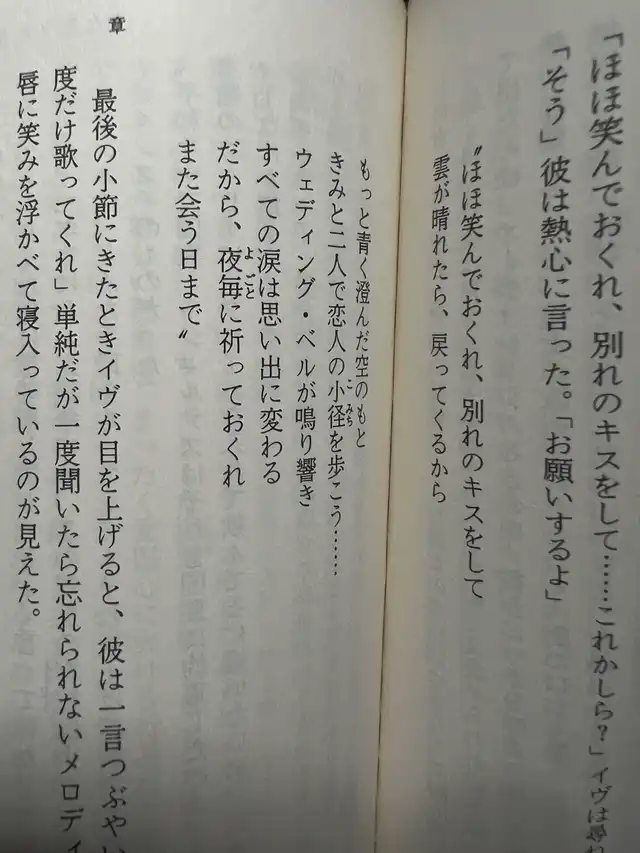 「ほほ笑んでおくれ、別れのキスをして……これかしら？」イヴは尋ね
「そう」彼は熱心に言った。「お願いするよ」
〝ほほ笑んでおくれ、別れのキスをして
雲が晴れたら、戻ってくるから
もっと青く澄んだ空のもと
きみと二人で恋人の小径を歩こう……
ウェディング・ベルが鳴り響き
すべての涙は思い出に変わる
だから、夜毎に祈っておくれ
また会う日まで〟
最後の小節にきたときイヴが目を上げると、彼は一言つぶやい
度だけ歌ってくれ」単純だが一度聞いたら忘れられないメロディ
唇に笑みを浮かべて寝入っているのが見えた。
章